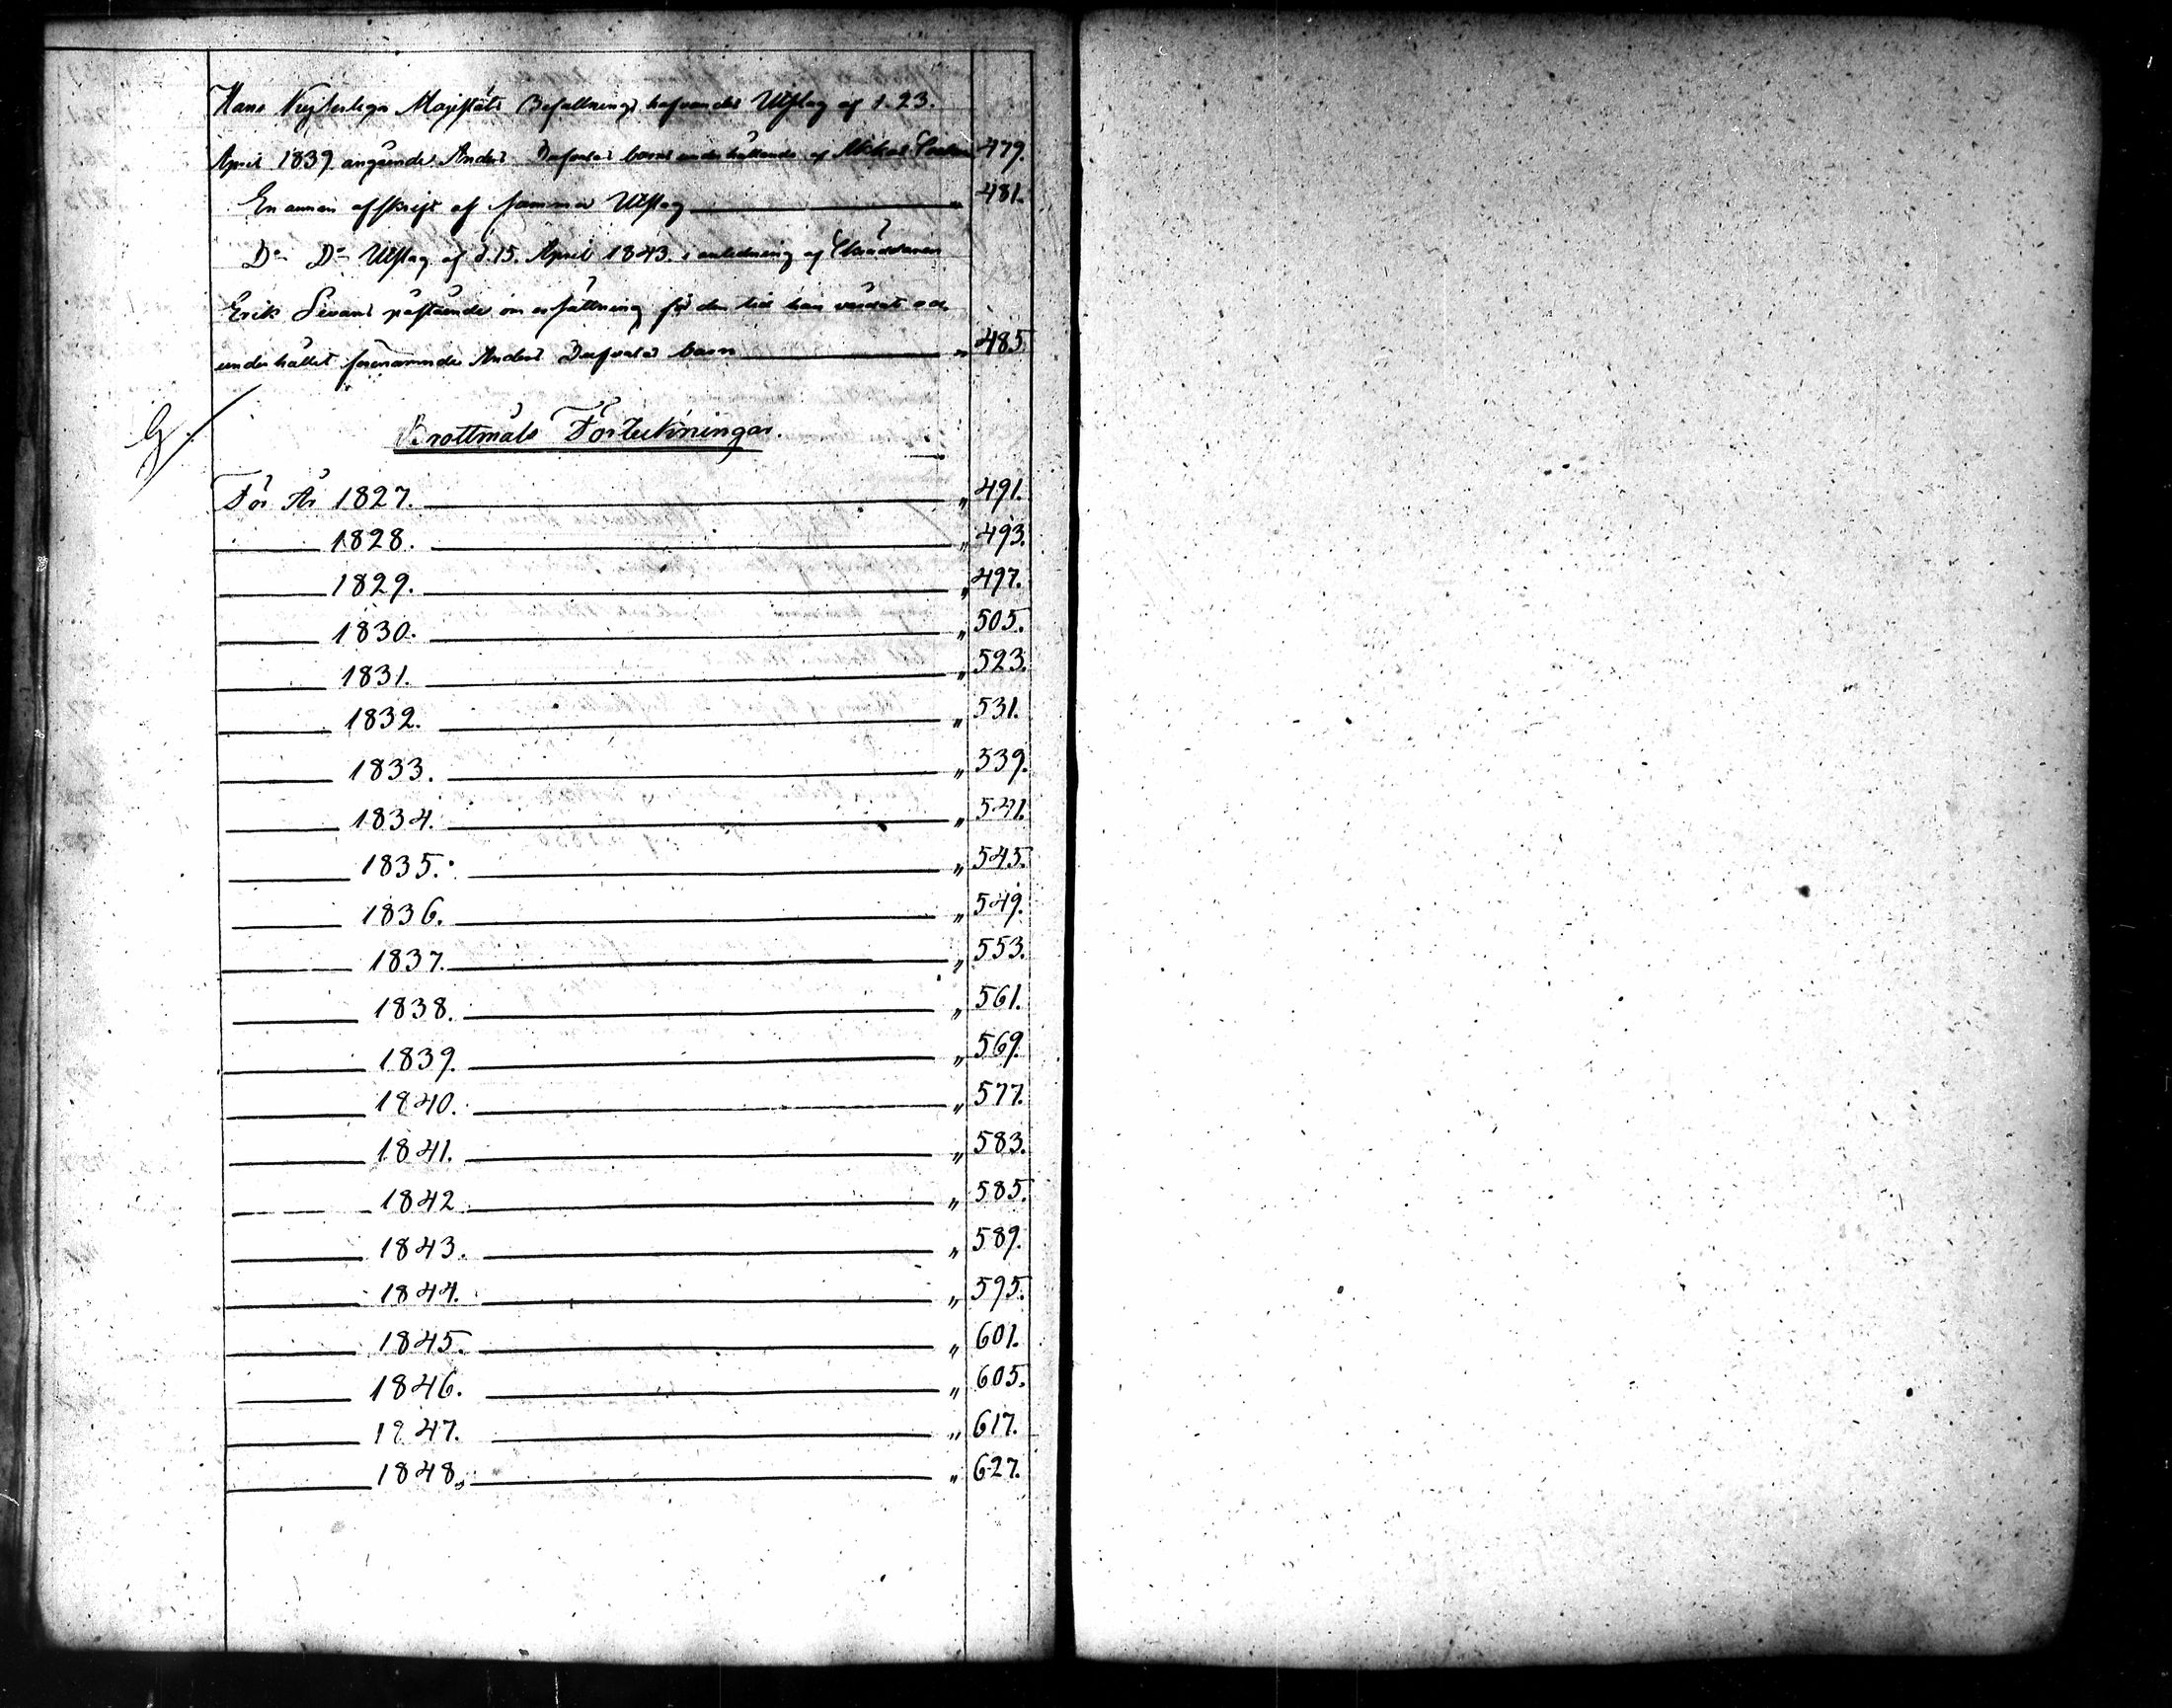 Hans Kejserliga Majestäts Befallningshafvandes Utslag af d. 23.
April 1839 angående Anders barns underhållande af 479.
En annan afskrift af samma Utslag „ 481.
Do Do Utslag af d. 15. April 1843. i anledning af
Erik påstående om ersättning för den tid han vårdat och
underhållit förenämnde Anders barn „ 485.
G.
Brottmåls Förteckningar.
För År 1827. „ 491.
1828. „ 493.
1829. „ 497.
1830. „ 505.
1831. „ 523.
1832. „ 531.
1833. „ 539.
1834. „ 541.
1835. „ 545.
1836. „ 549.
1837. „ 553.
1838. „ 561.
1839. „ 569.
1840. „ 577.
1841. „ 583.
1842. „ 585.
1843. „ 589.
1844. „ 595.
1845. „ 601.
1846. „ 605.
1847. „ 617.
1848. „ 627.